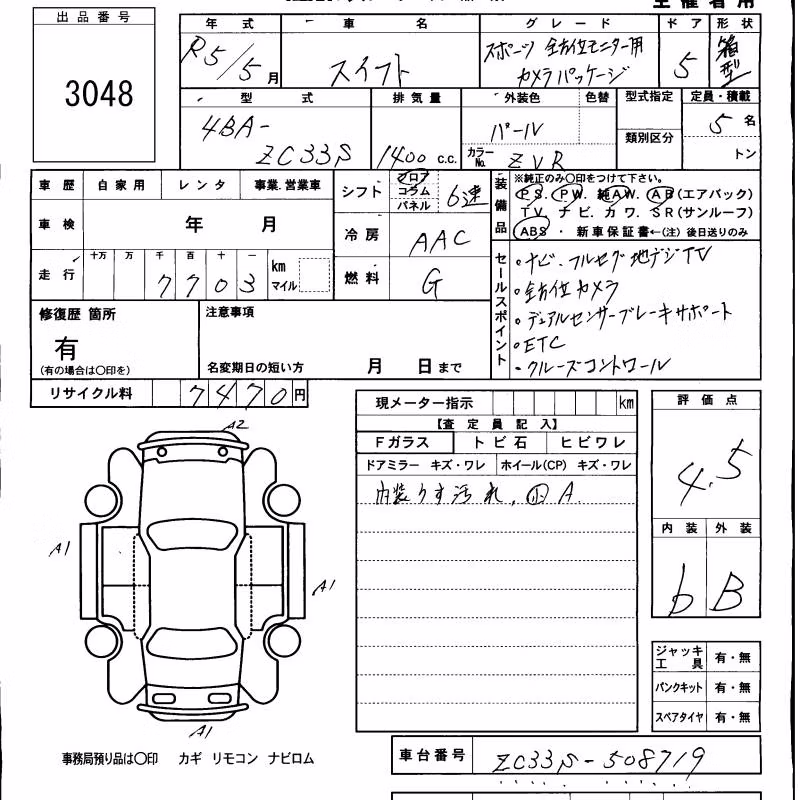 出品番号
3048
年式 車名 グレード ドア 形状
R5/5月 スイフト スポーツ 全方位モニター用カメラパッケージ 5 箱型
型式 排気量 外装色 色替 型式指定 定員・積載
4BA-ZC33S 1400 c.c. パール 類別区分 5名
カラーNo. ZVR トン
車歴 自家用 レンタ 事業.営業車
シフト フロア コラム パネル 6速
装備品 ※純正のみ〇印をつけて下さい。
PS. PW. 純AW. AB(エアバック)
TV. ナビ. カワ. SR(サンルーフ)
ABS ・ 新車保証書←(注)後日送りのみ
車検 年 月
冷房 AAC
走行 十万 万 千 百 十 一 km マイル
7703
燃料 G
セールスポイント
。ナビ.フルセグ地デジTV
。全方位カメラ
。デュアルセンサーブレーキサポート
。ETC
。クルーズコントロール
修復歴 箇所
有
(有の場合は〇印を)
注意事項
名変期日の短い方 月 日まで
リサイクル料 7470円
現メーター指示 km
【査定員記入】
Fガラス トビ石 ヒビワレ
ドアミラー キズ・ワレ ホイール(CP) キズ・ワレ
内装うす汚れ,
A.
評価点
4.5
内装 外装
b B
A2
A1
A1
A1
ジャッキ工具 有・無
パンクキット 有・無
スペアタイヤ 有・無
事務局預り品は〇印 カギ リモコン ナビロム
車台番号 ZC33S-508719